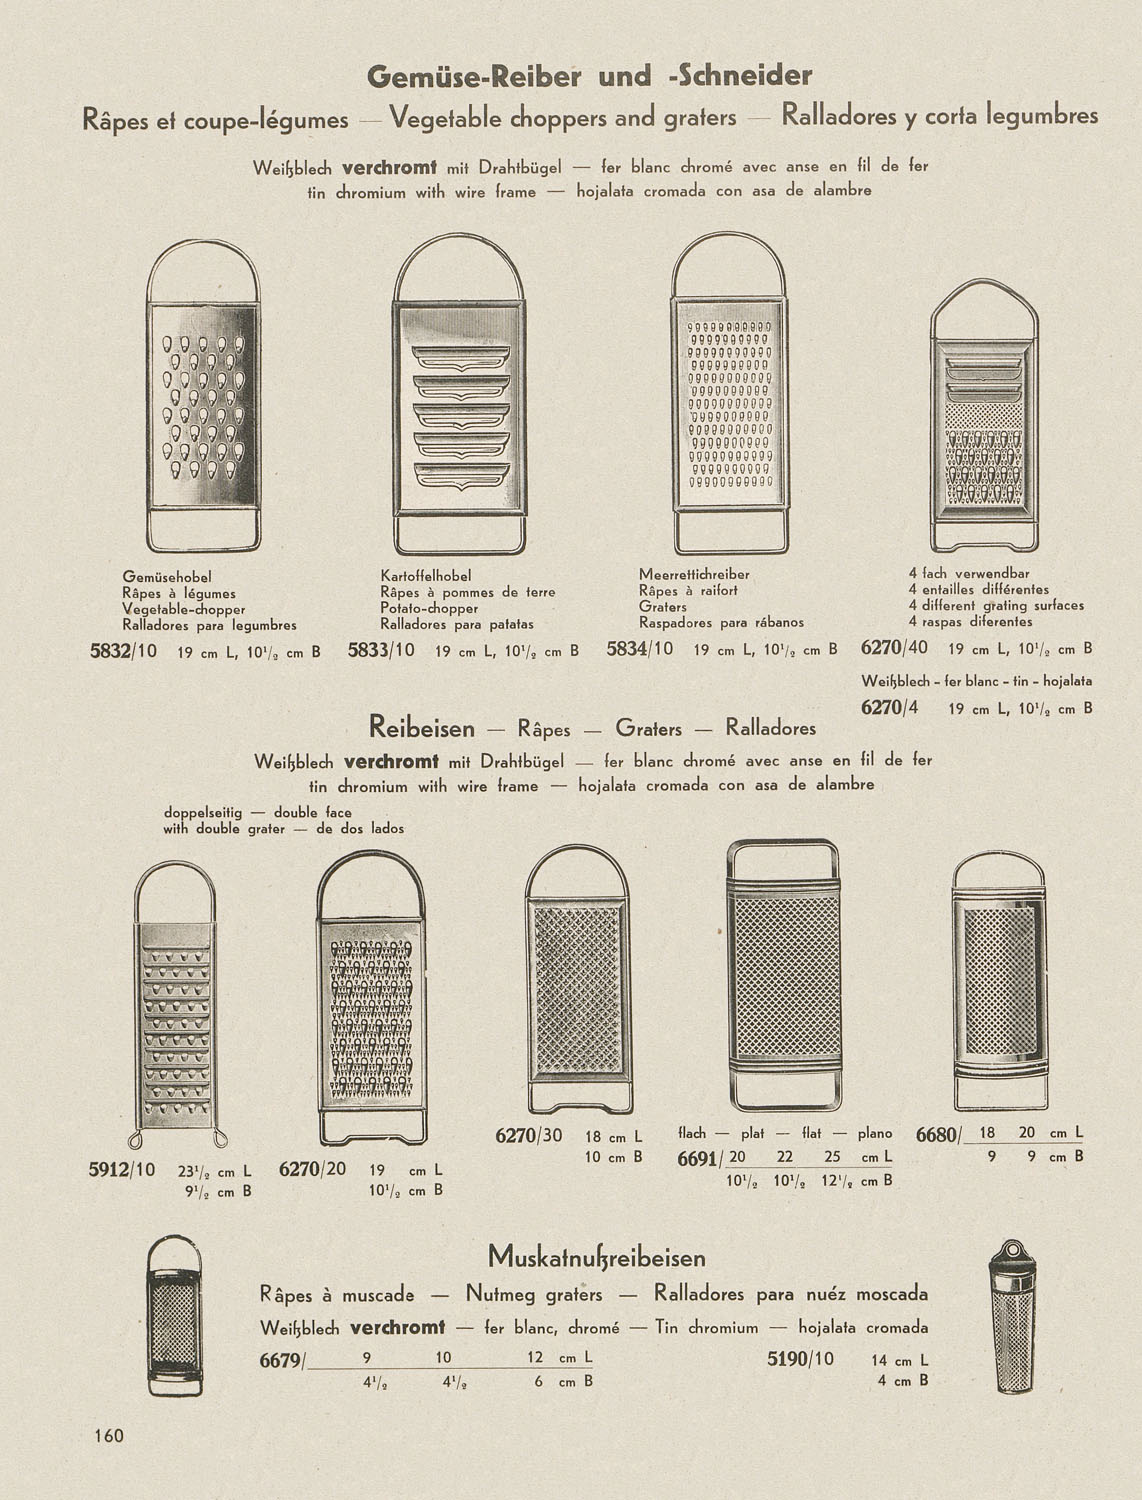 Gemüse-Reiber und -Schneider
Râpes et coupe-légumes — Vegetable choppers and graters — Ralladores y corta legumbres
Weißblech verchromt mit Drahtbügel — fer blanc chromé avec anse en fil de fer
tin chromium with wire frame — hojalata cromada con asa de alambre
Gemüsehobel
Râpes à légumes
Vegetable-chopper
Ralladores para legumbres
5832/10 19 cm L, 10¹/₂ cm B
Kartoffelhobel
Râpes à pommes de terre
Potato-chopper
Ralladores para patatas
5833/10 19 cm L, 10¹/₂ cm B
Meerrettichreiber
Râpes à raifort
Graters
Raspadores para rábanos
5834/10 19 cm L, 10¹/₂ cm B
4 fach verwendbar
4 entailles différentes
4 different grating surfaces
4 raspas diferentes
6270/40 19 cm L, 10¹/₂ cm B
Weißblech - fer blanc - tin - hojalata
6270/4 19 cm L, 10¹/₂ cm B
Reibeisen — Râpes — Graters — Ralladores
Weißblech verchromt mit Drahtbügel — fer blanc chromé avec anse en fil de fer
tin chromium with wire frame — hojalata cromada con asa de alambre
doppelseitig — double face
with double grater — de dos lados
5912/10 23¹/₂ cm L
9¹/₂ cm B
6270/20 19 cm L
10¹/₂ cm B
6270/30 18 cm L
10 cm B
flach — plat — flat — plano
6691/ 20 22 25 cm L
10¹/₂ 10¹/₂ 12¹/₂ cm B
6680/ 18 20 cm L
9 9 cm B
Muskatnußreibeisen
Râpes à muscade — Nutmeg graters — Ralladores para nuéz moscada
Weißblech verchromt — fer blanc, chromé — Tin chromium — hojalata cromada
6679/ 9 10 12 cm L
4¹/₂ 4¹/₂ 6 cm B
5190/10 14 cm L
4 cm B
160